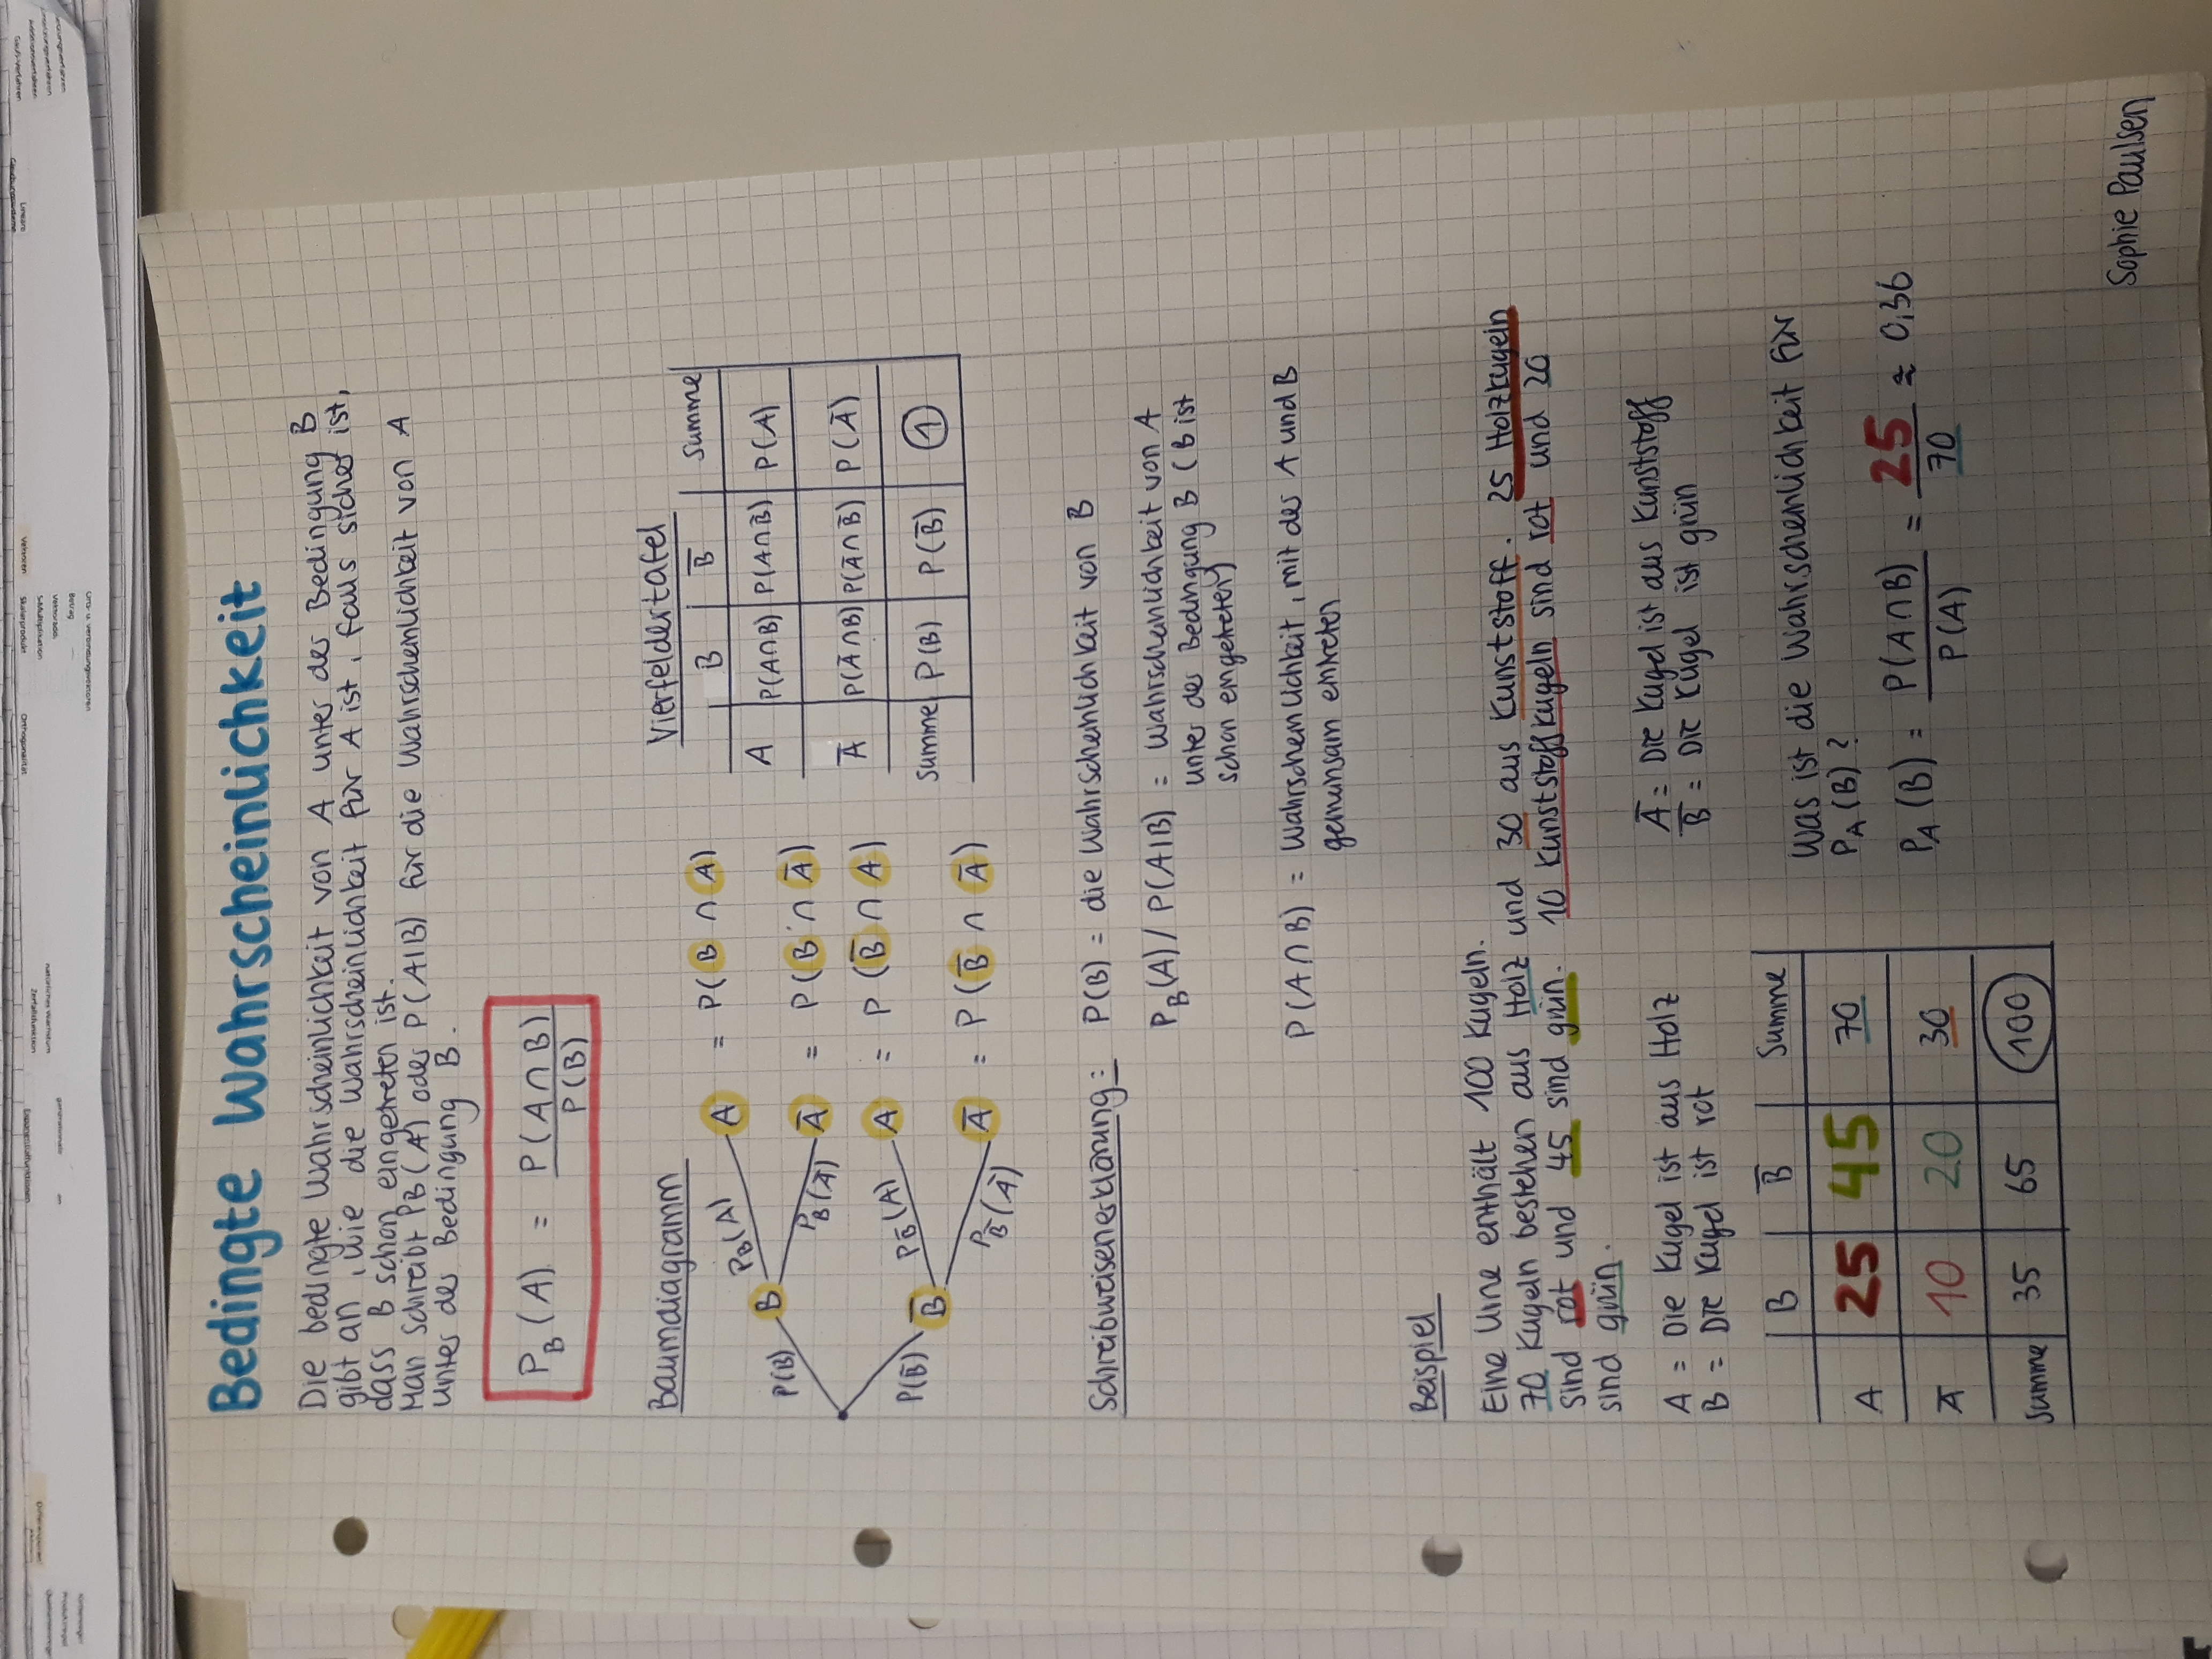 Bedingte Wahrscheinlichkeit
Die bedingte Wahrscheinlichkeit von A unter der Bedingung B
gibt an, wie die Wahrscheinlichkeit für A ist, falls sicher ist,
dass B schon eingetreten ist.
Man schreibt PB(A) oder P(A|B) für die Wahrscheinlichkeit von A
unter der Bedingung B.
P_B(A) = P(A∩B) / P(B)
Baumdiagramm
P(B)
B
P_B(A)
A = P(B ∩ A)
P_B(A̅)
A̅ = P(B ∩ A̅)
P(B̅)
B̅
P_B̅(A)
A = P(B̅ ∩ A)
P_B̅(A̅)
A̅ = P(B̅ ∩ A̅)
Vierfeldertafel
B B̅ Summe
A P(A∩B) P(A∩B̅) P(A)
A̅ P(A̅∩B) P(A̅∩B̅) P(A̅)
Summe P(B) P(B̅) 1
Schreibweisenerklärung: P(B) = die Wahrscheinlichkeit von B
P_B(A) / P(A|B) = Wahrscheinlichkeit von A
unter der Bedingung B (B ist
schon eingetreten)
P(A∩B) = Wahrscheinlichkeit, mit der A und B
gemeinsam eintreten
Beispiel
Eine Urne enthält 100 Kugeln.
70 Kugeln bestehen aus Holz und 30 aus Kunststoff. 25 Holzkugeln
sind rot und 45 sind grün. 10 Kunststoffkugeln sind rot und 20
sind grün.
A = Die Kugel ist aus Holz
B = Die Kugel ist rot
A̅ = Die Kugel ist aus Kunststoff
B̅ = Die Kugel ist grün
B B̅ Summe
A 25 45 70
A̅ 10 20 30
Summe 35 65 100
Was ist die Wahrscheinlichkeit für
P_A(B)?
P_A(B) = P(A∩B) / P(A) = 25 / 70 ≈ 0,36
Sophie Paulsen